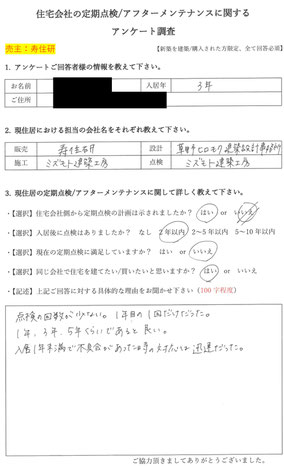 住宅会社の定期点検/アフターメンテナンスに関する
アンケート調査
売主：寿住研
【新築を建築/購入された方限定、全て回答必須】
1. アンケートご回答者様の情報を教えて下さい。
お名前 入居年 3年
ご住所
2. 現住居における担当の会社名をそれぞれ教えて下さい。
販売 寿住研 設計 草野ヒロモク建築設計事務所
施工 ミズモト建築工房 点検 ミズモト建築工房
3. 現住居の定期点検/アフターメンテナンスに関して詳しく教えて下さい。
・【選択】住宅会社側から定期点検の計画は示されましたか？ はい or いいえ
・【選択】入居後に点検はありましたか？ なし 2年以内 2～5年以内 5～10年以内
・【選択】現在の定期点検に満足していますか？ はい or いいえ
・【選択】同じ会社で住宅を建てたい/買いたいと思いますか？ はい or いいえ
・【記述】上記ご回答に対する具体的な理由をお聞かせ下さい（100字程度）
点検の回数が少ない。1年目の1回だけだった。
1年、3年、5年くらいであると良い。
入居1年未満で不具合があった時の対応は迅速だった。
ご協力頂きましてありがとうございました。